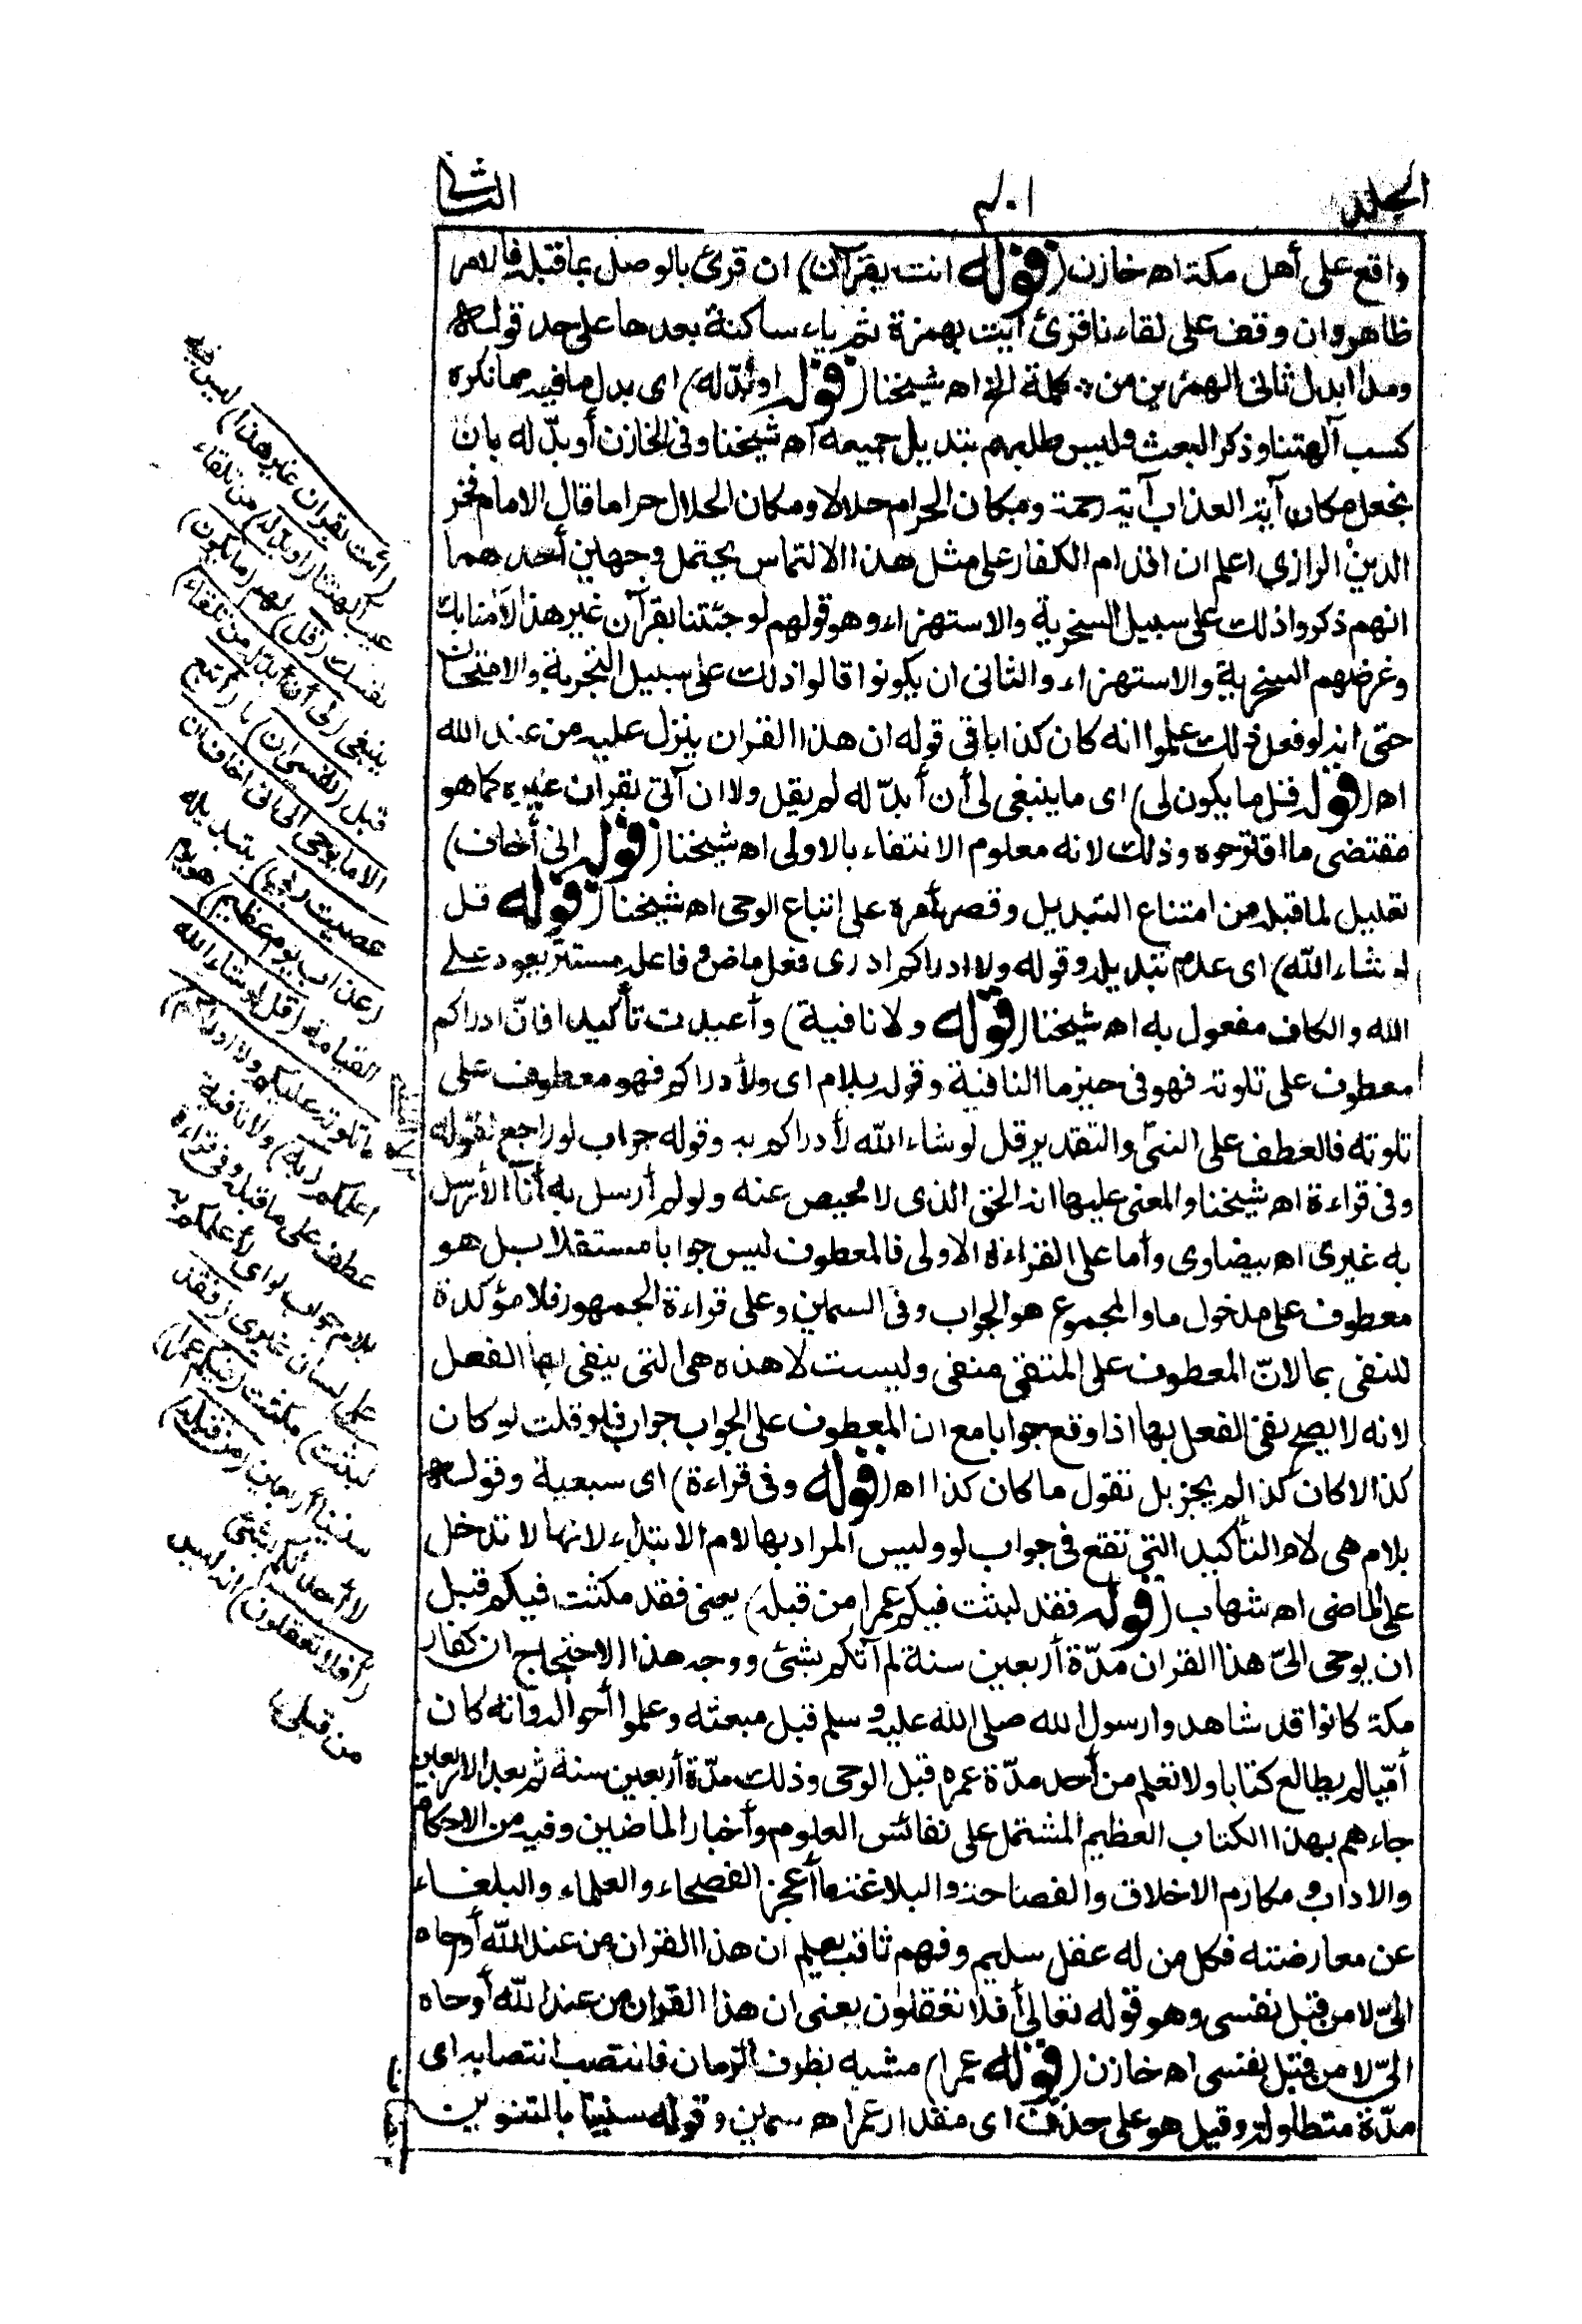 الجلد
الثانى
واقع على أهل مكة اه خازن (قوله ائت بقرآن) ان قرئ بالوصل بما قبله فالامر
ظاهر وان وقف على لقاءنا قرئ ايت بهمزة ثم ياء ساكنة بعدها على حد قوله
ومدا ابدل ثانى الهمزين من * كلمة الخ اه شيخنا (قوله او بدّله) اى بدل ما فيه مما نكره
كسب آلهتنا وذكر البعث وليس طلبهم تبديل جميعه اه شيخنا وفى الخازن أو بدّله بان
تجعل مكان آية العذاب آية رحمة ومكان الحرام حلالا ومكان الحلال حراما قال الامام فخر
الدين الرازي اعلم ان اقدام الكفار على مثل هذا الالتماس يحتمل وجهين أحدهما
انهم ذكروا ذلك على سبيل السخرية والاستهزاء وهو قولهم لو جئتنا بقرآن غير هذا لآمنا بك
وغرضهم السخرية والاستهزاء والثانى ان يكونوا قالوا ذلك على سبيل التجربة والامتحان
حتى انه لو فعل ذلك علموا انه كان كذابا فى قوله ان هذا القران ينزل عليه من عند الله
اه (قوله قل ما يكون لى) اى ما ينبغى لى أن أبدّله لم يقل ولا ان آتى بقران غيره كما هو
مقتضى ما اقترحوه وذلك لانه معلوم الانتفاء بالاولى اه شيخنا (قوله انى أخاف)
تعليل لما قبله من امتناع التبديل وقصر أمره على اتباع الوحى اه شيخنا (قوله قل
لو شاء الله) اى عدم تبديله وقوله ولا ادراكم ادرى فعل ماض وفاعله مستتر يعود على
الله والكاف مفعول به اه شيخنا (قوله ولا نافية) وأعيدت تأكيدا فانّ ادراكم
معطوف على تلوته فهو فى حيز ما النافية وقوله بلام اى ولأدراكم فهو معطوف على
تلوته فالعطف على النفى والتقدير قل لو شاء الله لأدراكم به وقوله جواب لو راجع لقوله
وفى قراءة اه شيخنا والمعنى عليها انه الحق الذى لا محيص عنه ولو لم أرسل به أنا لأرسل
به غيرى اه بيضاوى وأما على القراءة الاولى فالمعطوف ليس جوابا مستقلا بل هو
معطوف على مدخول ما والمجموع هو الجواب وفى السمين وعلى قراءة الجمهور فلا مؤكدة
للنفى بما لانّ المعطوف على المنفى منفى وليست لا هذه هى التى ينفى بها الفعل
لانه لا يصح نفى الفعل بها اذا وقع جوابا مع ان المعطوف على الجواب جواب فلو قلت لو كان
كذا لا كان كذا لم يجز بل تقول ما كان كذا اه (قوله وفى قراءة) اى سبعية وقوله
بلام هى لام التأكيد التى تقع فى جواب لو وليس المراد بها لام الابتداء لانها لا تدخل
على الماضى اه شهاب (قوله فقد لبثت فيكم عمرا من قبله) يعنى فقد مكثت فيكم قبل
ان يوحى الىّ هذا القران مدّة أربعين سنة لم آتكم بشئ ووجه هذا الاحتجاج ان كفار
مكة كانوا قد شاهدوا رسول الله صلى الله عليه وسلم قبل مبعثه وعلموا أحواله وانه كان
أمّيا لم يطالع كتابا ولا تعلم من أحد مدّة عمره قبل الوحى وذلك مدّة أربعين سنة ثم بعد الاربعين
جاءهم بهذا الكتاب العظيم المشتمل على نفائس العلوم وأخبار الماضين وفيه من الاحكام
والاداب ومكارم الاخلاق والفصاحة والبلاغة ما أعجز الفصحاء والعلماء والبلغاء
عن معارضته فكل من له عقل سليم وفهم ثاقب يعلم ان هذا القران من عند الله أوحاه
الىّ لا من قبل نفسى وهو قوله تعالى أفلا تعقلون يعنى ان هذا القران من عند الله أوحاه
الىّ لا من قبل نفسى اه خازن (قوله عمرا) مشبه بظرف الزمان فانتصب انتصابه اى
مدّة متطاولة وقيل هو على حذف اى مقدار عمر اه سمين وقوله سنينا بالتنوين
(ائت بقران غير هذا) ليس فيه
عيب آلهتنا (او بدّله) من تلقاء
نفسك (قل) لهم (ما يكون)
ينبغى (لى أن أبدّله من تلقاء)
قبل (نفسى ان) ما (أتبع
الا ما يوحى الى انى اخاف ان
عصيت ربى) بتبديله
(عذاب يوم عظيم) هو يوم
القيامة (قل لو شاء الله
ما تلوته عليكم ولا ادراكم)
اعلمكم (به) ولا نافية
عطف على ما قبله وفى قراءة
بلام جواب لو اى لأعلمكم به
على لسان غيرى (فقد
لبثت) مكثت (فيكم عمرا)
سنينا أربعين (من قبله)
لا أحدثكم بشئ
(أفلا تعقلون) انه ليس
من قبلى